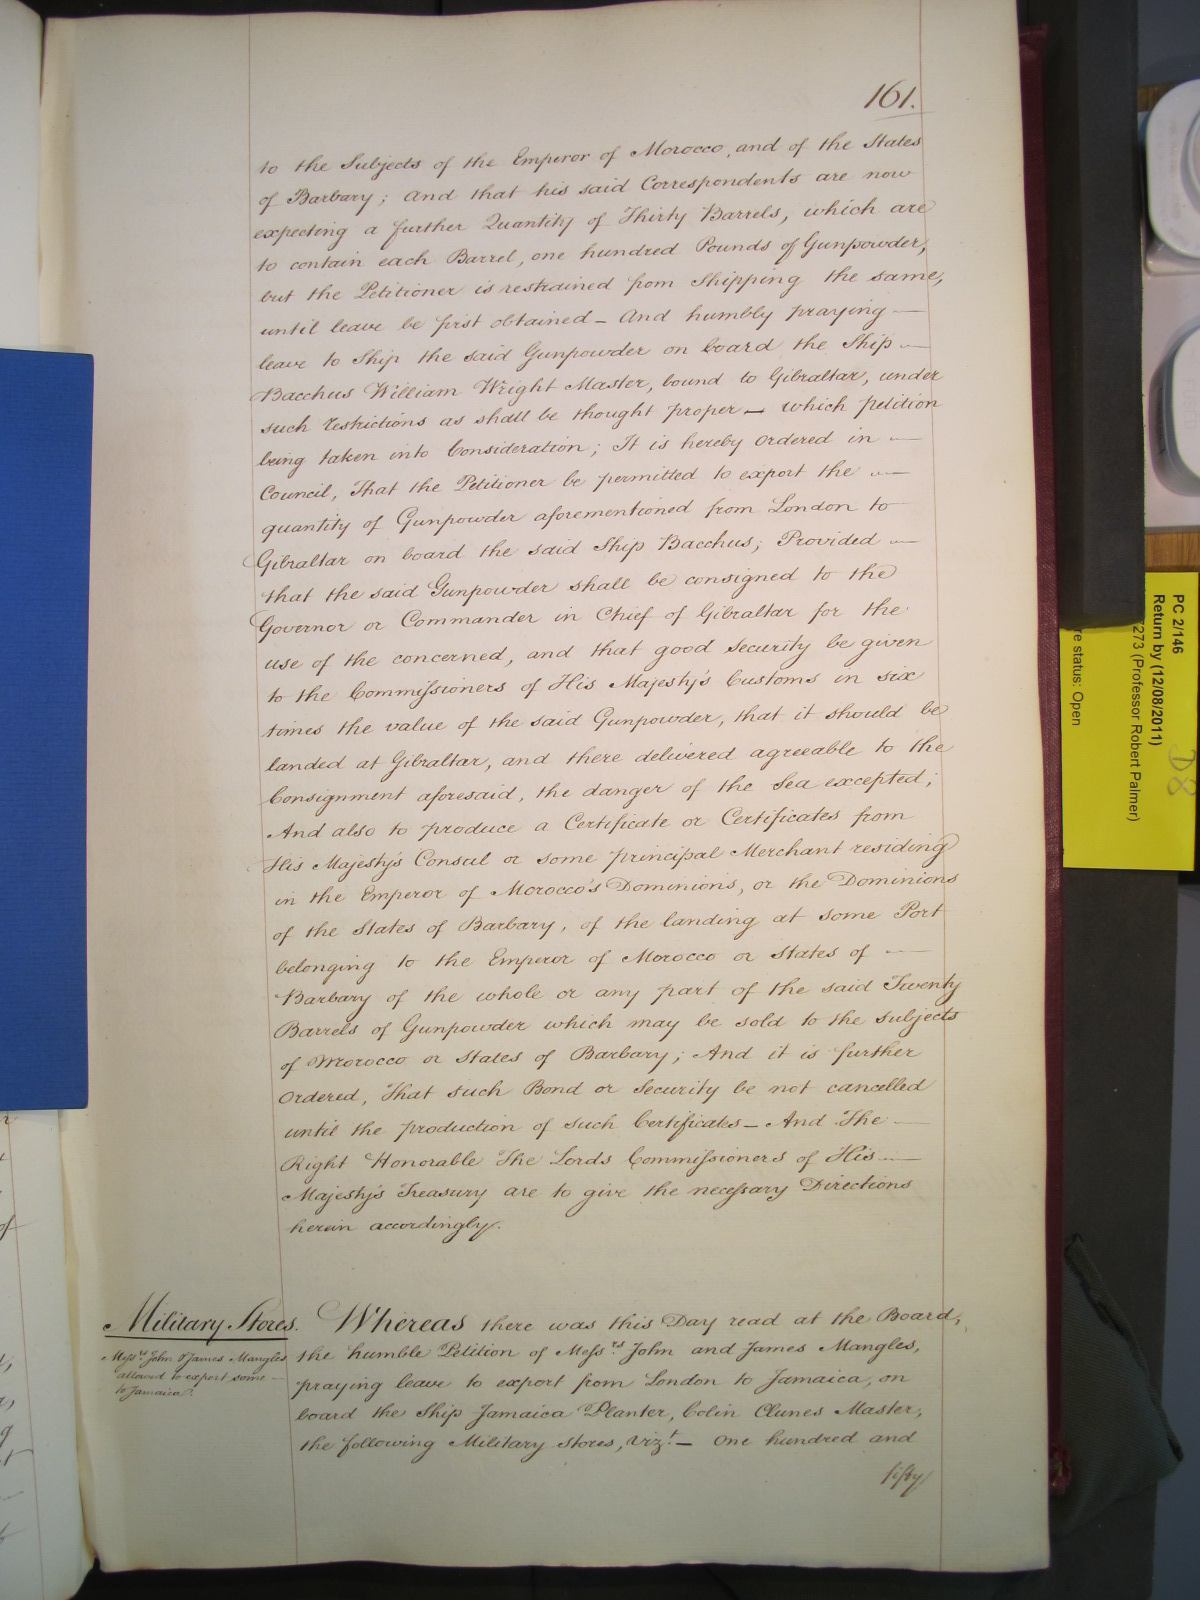 161.
to the Subjects of the Emperor of Morocco, and of the States
of Barbary; And that his said Correspondents are now
expecting a further Quantity of Thirty Barrels, which are
to contain each Barrel, one hundred Pounds of Gunpowder,
but the Petitioner is restrained from Shipping the same,
until leave be first obtained – And humbly praying —
leave to Ship the said Gunpowder on board the Ship —
Bacchus William Wright Master, bound to Gibraltar, under
such restrictions as shall be thought proper — which petition
being taken into Consideration; It is hereby Ordered in —
Council, That the Petitioner be permitted to export the —
quantity of Gunpowder aforementioned from London to
Gibraltar on board the said Ship Bacchus; Provided —
that the said Gunpowder shall be consigned to the
Governor or Commander in Chief of Gibraltar for the
use of the concerned, and that good Security be given
to the Commissioners of His Majesty's Customs in six
times the value of the said Gunpowder, that it should be
landed at Gibraltar, and there delivered agreeable to the
Consignment aforesaid, the danger of the Sea excepted;
And also to produce a Certificate or Certificates from
His Majesty's Consul or some principal Merchant residing
in the Emperor of Morocco's Dominions, or the Dominions
of the States of Barbary, of the landing at some Port
belonging to the Emperor of Morocco or States of —
Barbary of the whole or any part of the said Twenty
Barrels of Gunpowder which may be sold to the subjects
of Morocco or States of Barbary; And it is further
Ordered, That such Bond or Security be not cancelled
until the production of such Certificates – And The —
Right Honorable The Lords Commissioners of His —
Majesty's Treasury are to give the necessary Directions
herein accordingly.
Military Stores.
Messrs John & James Mangles
allowed to export some —
to Jamaica.
Whereas there was this Day read at the Board,
the humble Petition of Messrs John and James Mangles,
praying leave to export from London to Jamaica, on
board the Ship Jamaica Planter, Colin Clunes Master,
the following Military Stores, Vizt — One hundred and
fifty
PC 2/146
Return by (12/08/2011)
273 (Professor Robert Palmer)
re status: Open
D8